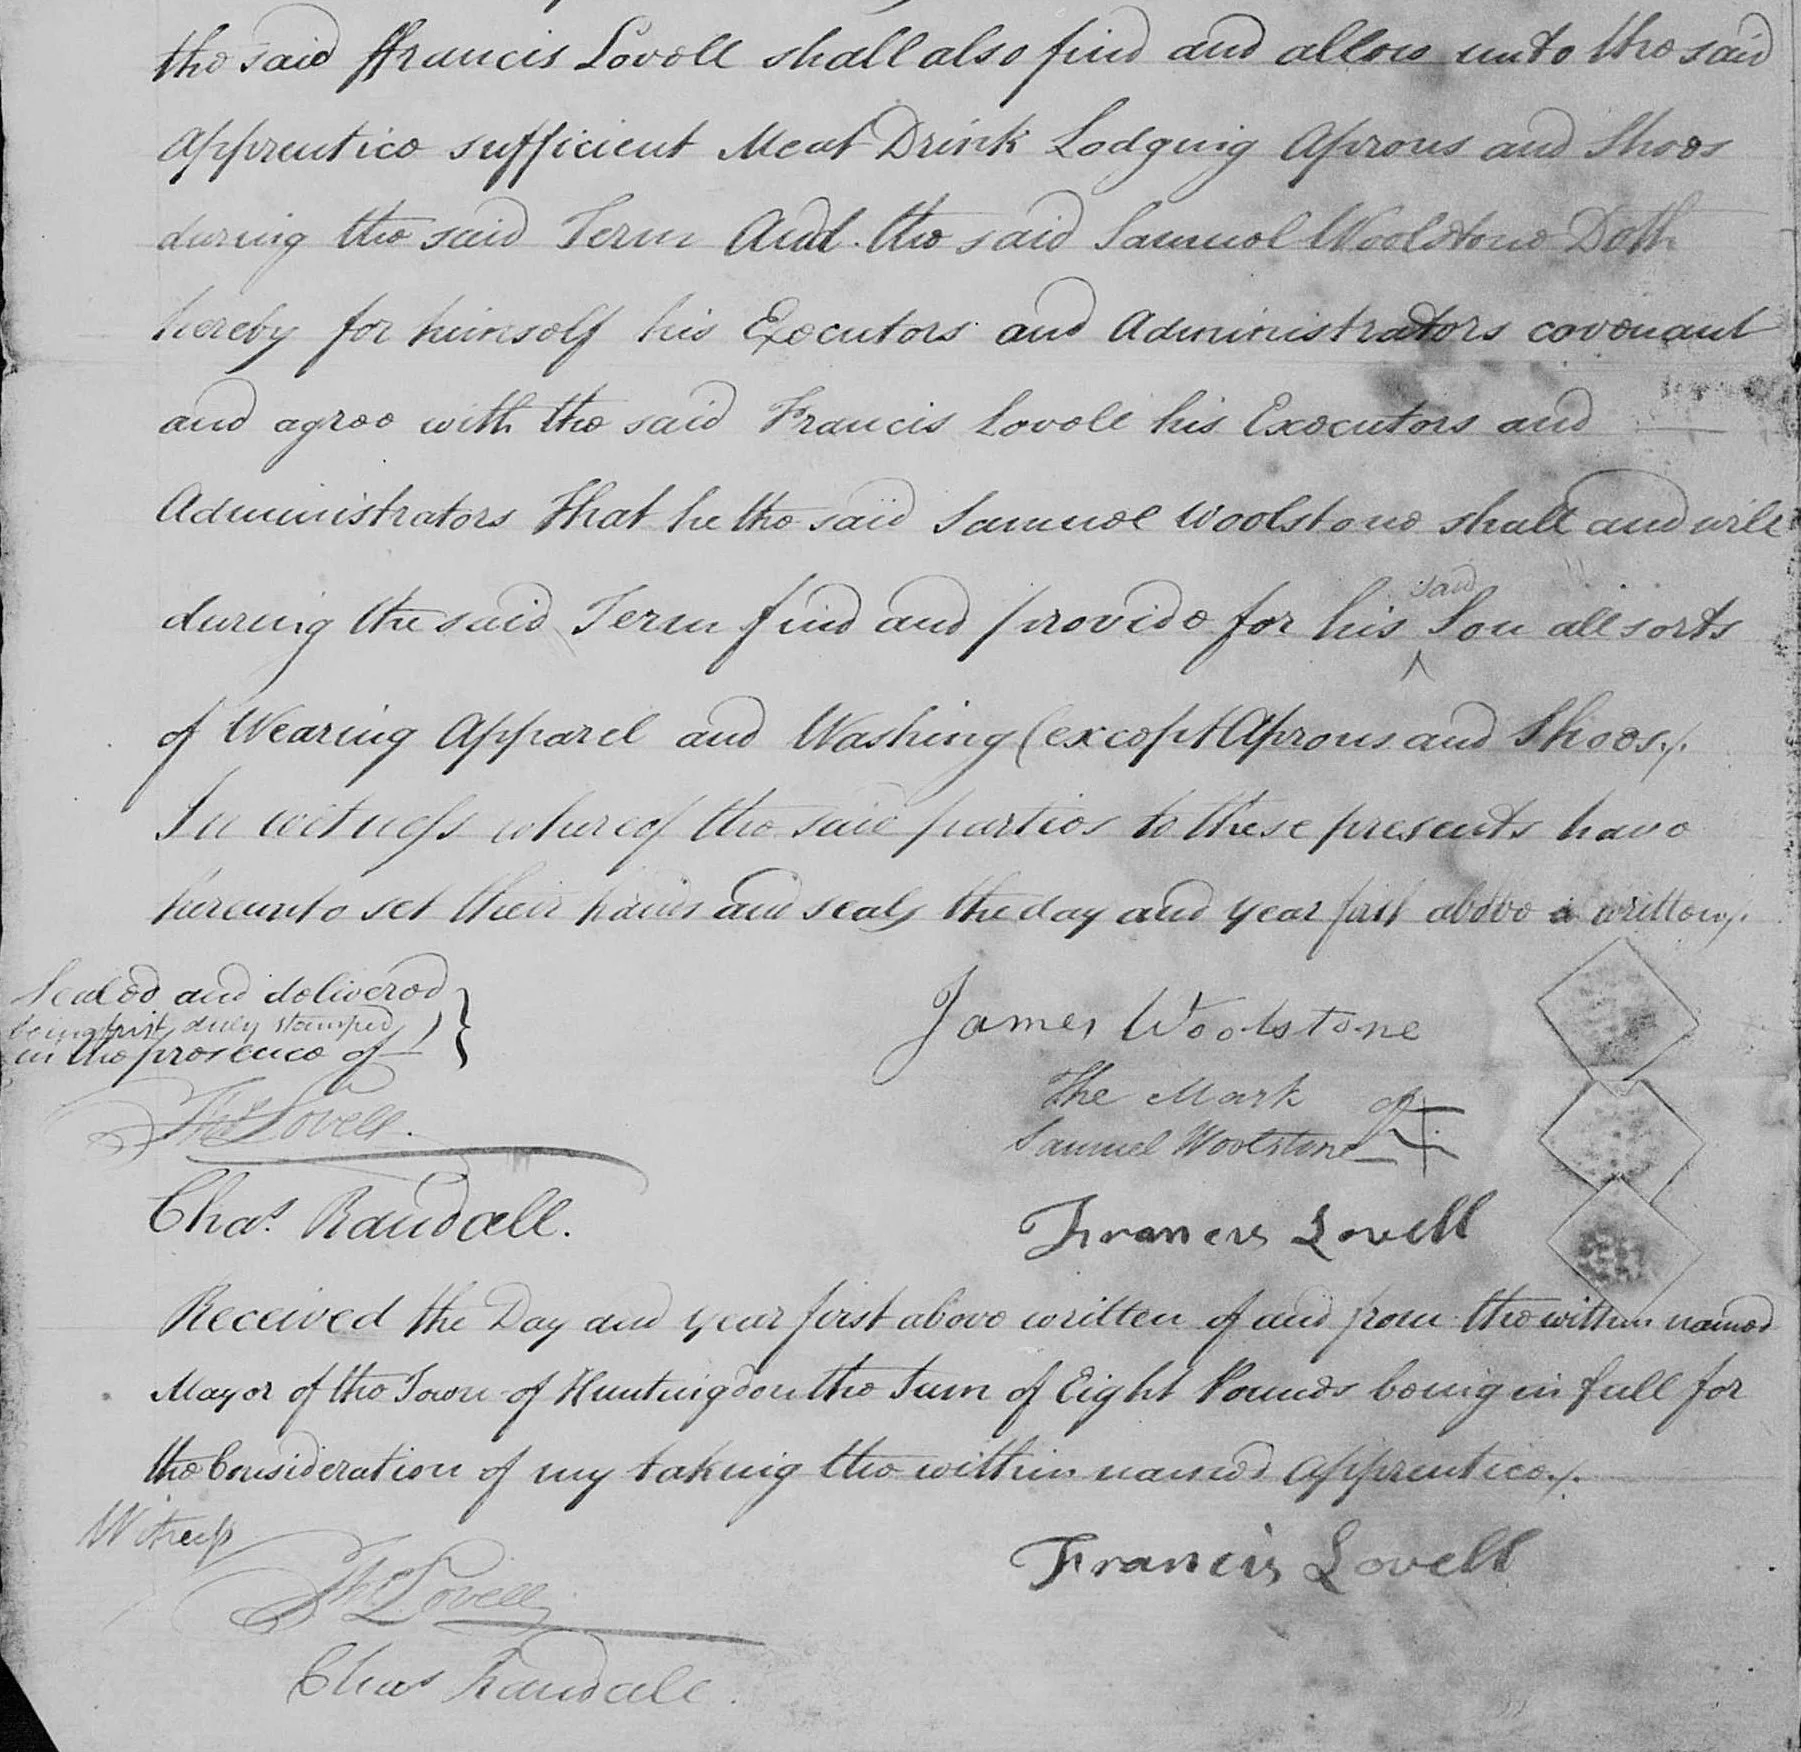 the said ffrancis Lovell shall also find and allow unto the said
Apprentice sufficient Meat Drink Lodging Aprons and Shoes
during the said Term And the said Samuel Woolstone Doth
hereby for himself his Executors and Administrators covenant
and agree with the said Francis Lovell his Executors and
Administrators that he the said Samuel Woolstone shall and will
said
during the said Term find and provide for his ^ Son all sorts
of Wearing Apparel and Washing (except Aprons and Shoes)./.
In witness whereof the said parties to these presents have
hereunto set their hands and seals the day and year first above written./.
Sealed and delivered
being first duly stamped
in the presence of
Thos Lovell.
Chas. Randall.
James Woolstone
The Mark of
Samuel Woolstone
Francis Lovell
Received the Day and year first above written of and from the within named
Mayor of the Town of Huntingdon the Sum of Eight Pounds being in full for
the Consideration of my taking the within named Apprentice./.
Witness
Thos Lovell
Chas Randall.
Francis Lovell